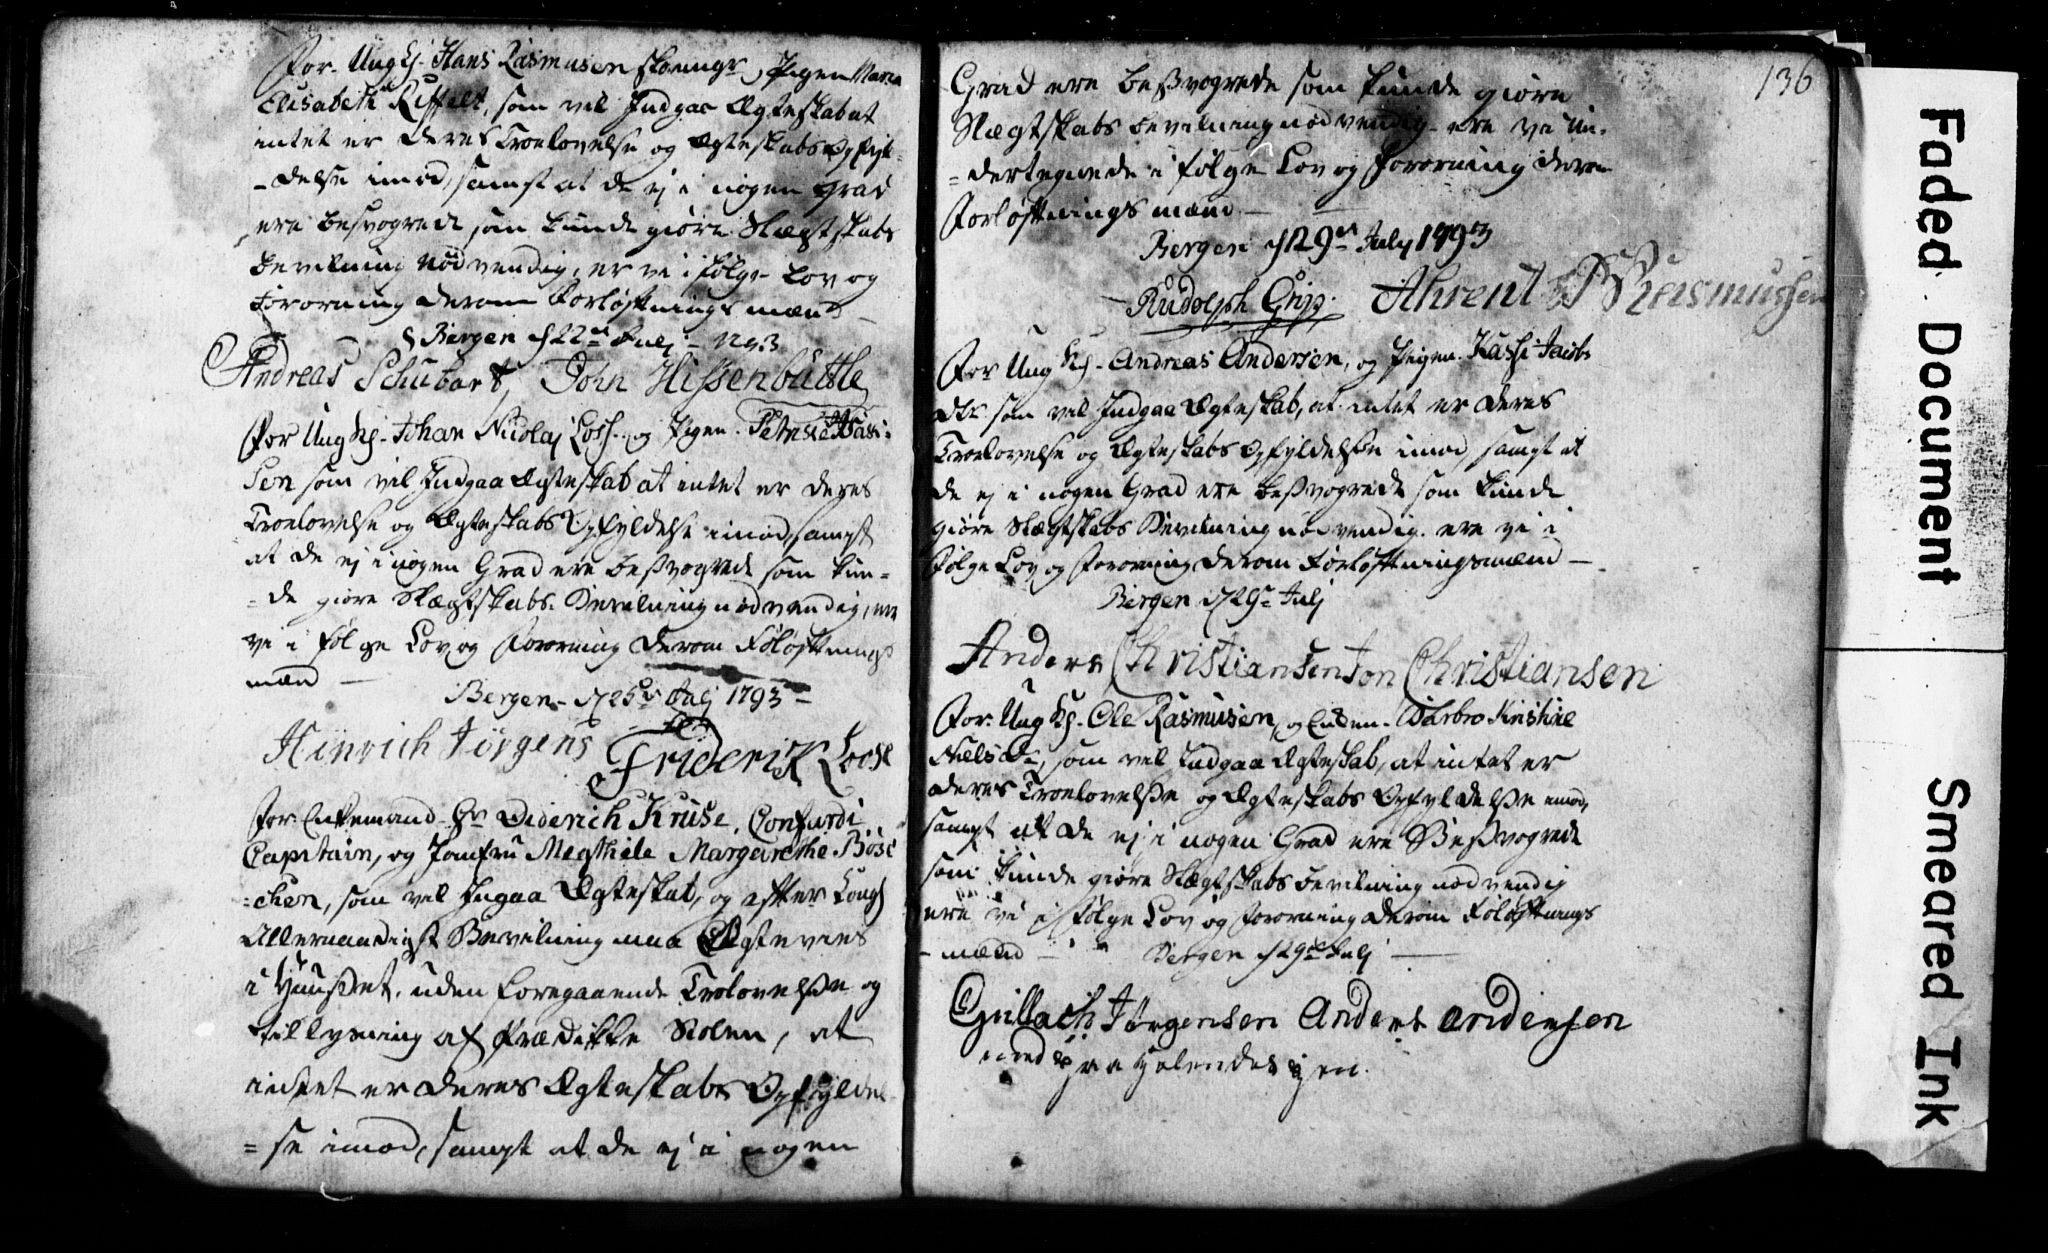 For Ung K. Hans Rasmusen og Pigen Maria
Elisabeth Riffelt, som vil Indgaae Ægteskab at
intet er deres Troelovelse og Ægteskabs Opfyl-
-delse imod, samt at de ej i nogen Grad
ere besvogrede som kunde giøre Slægtskabs
bevilning nødvendig, er vi i følge Lov og
Forordning derom Forløftnings mænd
Bergen d 22de Julj 1793
Andreas Schubart, John Hissenbüttle
For Ung K. Johan Nicolaj Losh og Pigen
sen som vil Indgaa Ægteskab at intet er deres
Troelovelse og Ægteskabs Opfyldelse imod, sampt
at de ej i nogen Grad ere beßvogrede som kun=
=de giøre Slægtskabs Bevilning nødvendig, ere
vi i følge Lov og Forordning derom Foløftnings
mænd
Bergen d 25de Julj 1793
Hinrich Jörgens Friderik Loose
For Enkemand Hr Diderich Kruse, Confardi
Capitain, og Jomfru Megthele Margarethe Böse
=chen, som vil Ingaa Ægteskab, og efter Kongl
Allernaadigst Bevilning maa Ægtevies
i Huußet, uden foregaaende Trolovelße og
tillysning af Prædikke Stolen, at
intet er deres Ægteskabs Opfyldel
=se imod, sampt at de ej i nogen
136
Grad ere beßvogrede som kunde giøre
Slægtskabs bevilning nødvendig ere vi Un=
=dertegnede i følge Lov og Forordning derom
Forløftnings mænd
Bergen d 29de July 1793
Rudolph Grip. Ahrent Rasmussen
For Ung K. Andreas Andersen, og Pigen Kassi Jacobs
dtr som vil Indgaa Ægteskab, at intet er deres
Troelovelse og Ægteskabs Opfyldelße imod, sampt at
de ej i nogen Grad ere beßvogrede som kunde
giøre Slægtskabs Bevilning nødvendig, ere vi i
følge Lov og Forordning derom Forløftningsmænd
Bergen d 29de Julj
Anders Christiansen Jon Christiansen
For Ung K. Ole Rasmusen, og Enken Barbro Kristine
Niels dtr, som vil Indgaa Ægteskab, at intet er
deres Troelovelße og Ægteskabs Opfyldelße imod,
sampt at de ej i nogen Grad ere Beßvogrede
som kunde giøre Slægtskabs bevilning nødvendig
ere vi i følge Lov og Forordning derom Foløftnings
-mænd Bergen d 29de Julj
Gullach Jørgensen Anders andersen
med Pen
Faded Document
Smeared Ink